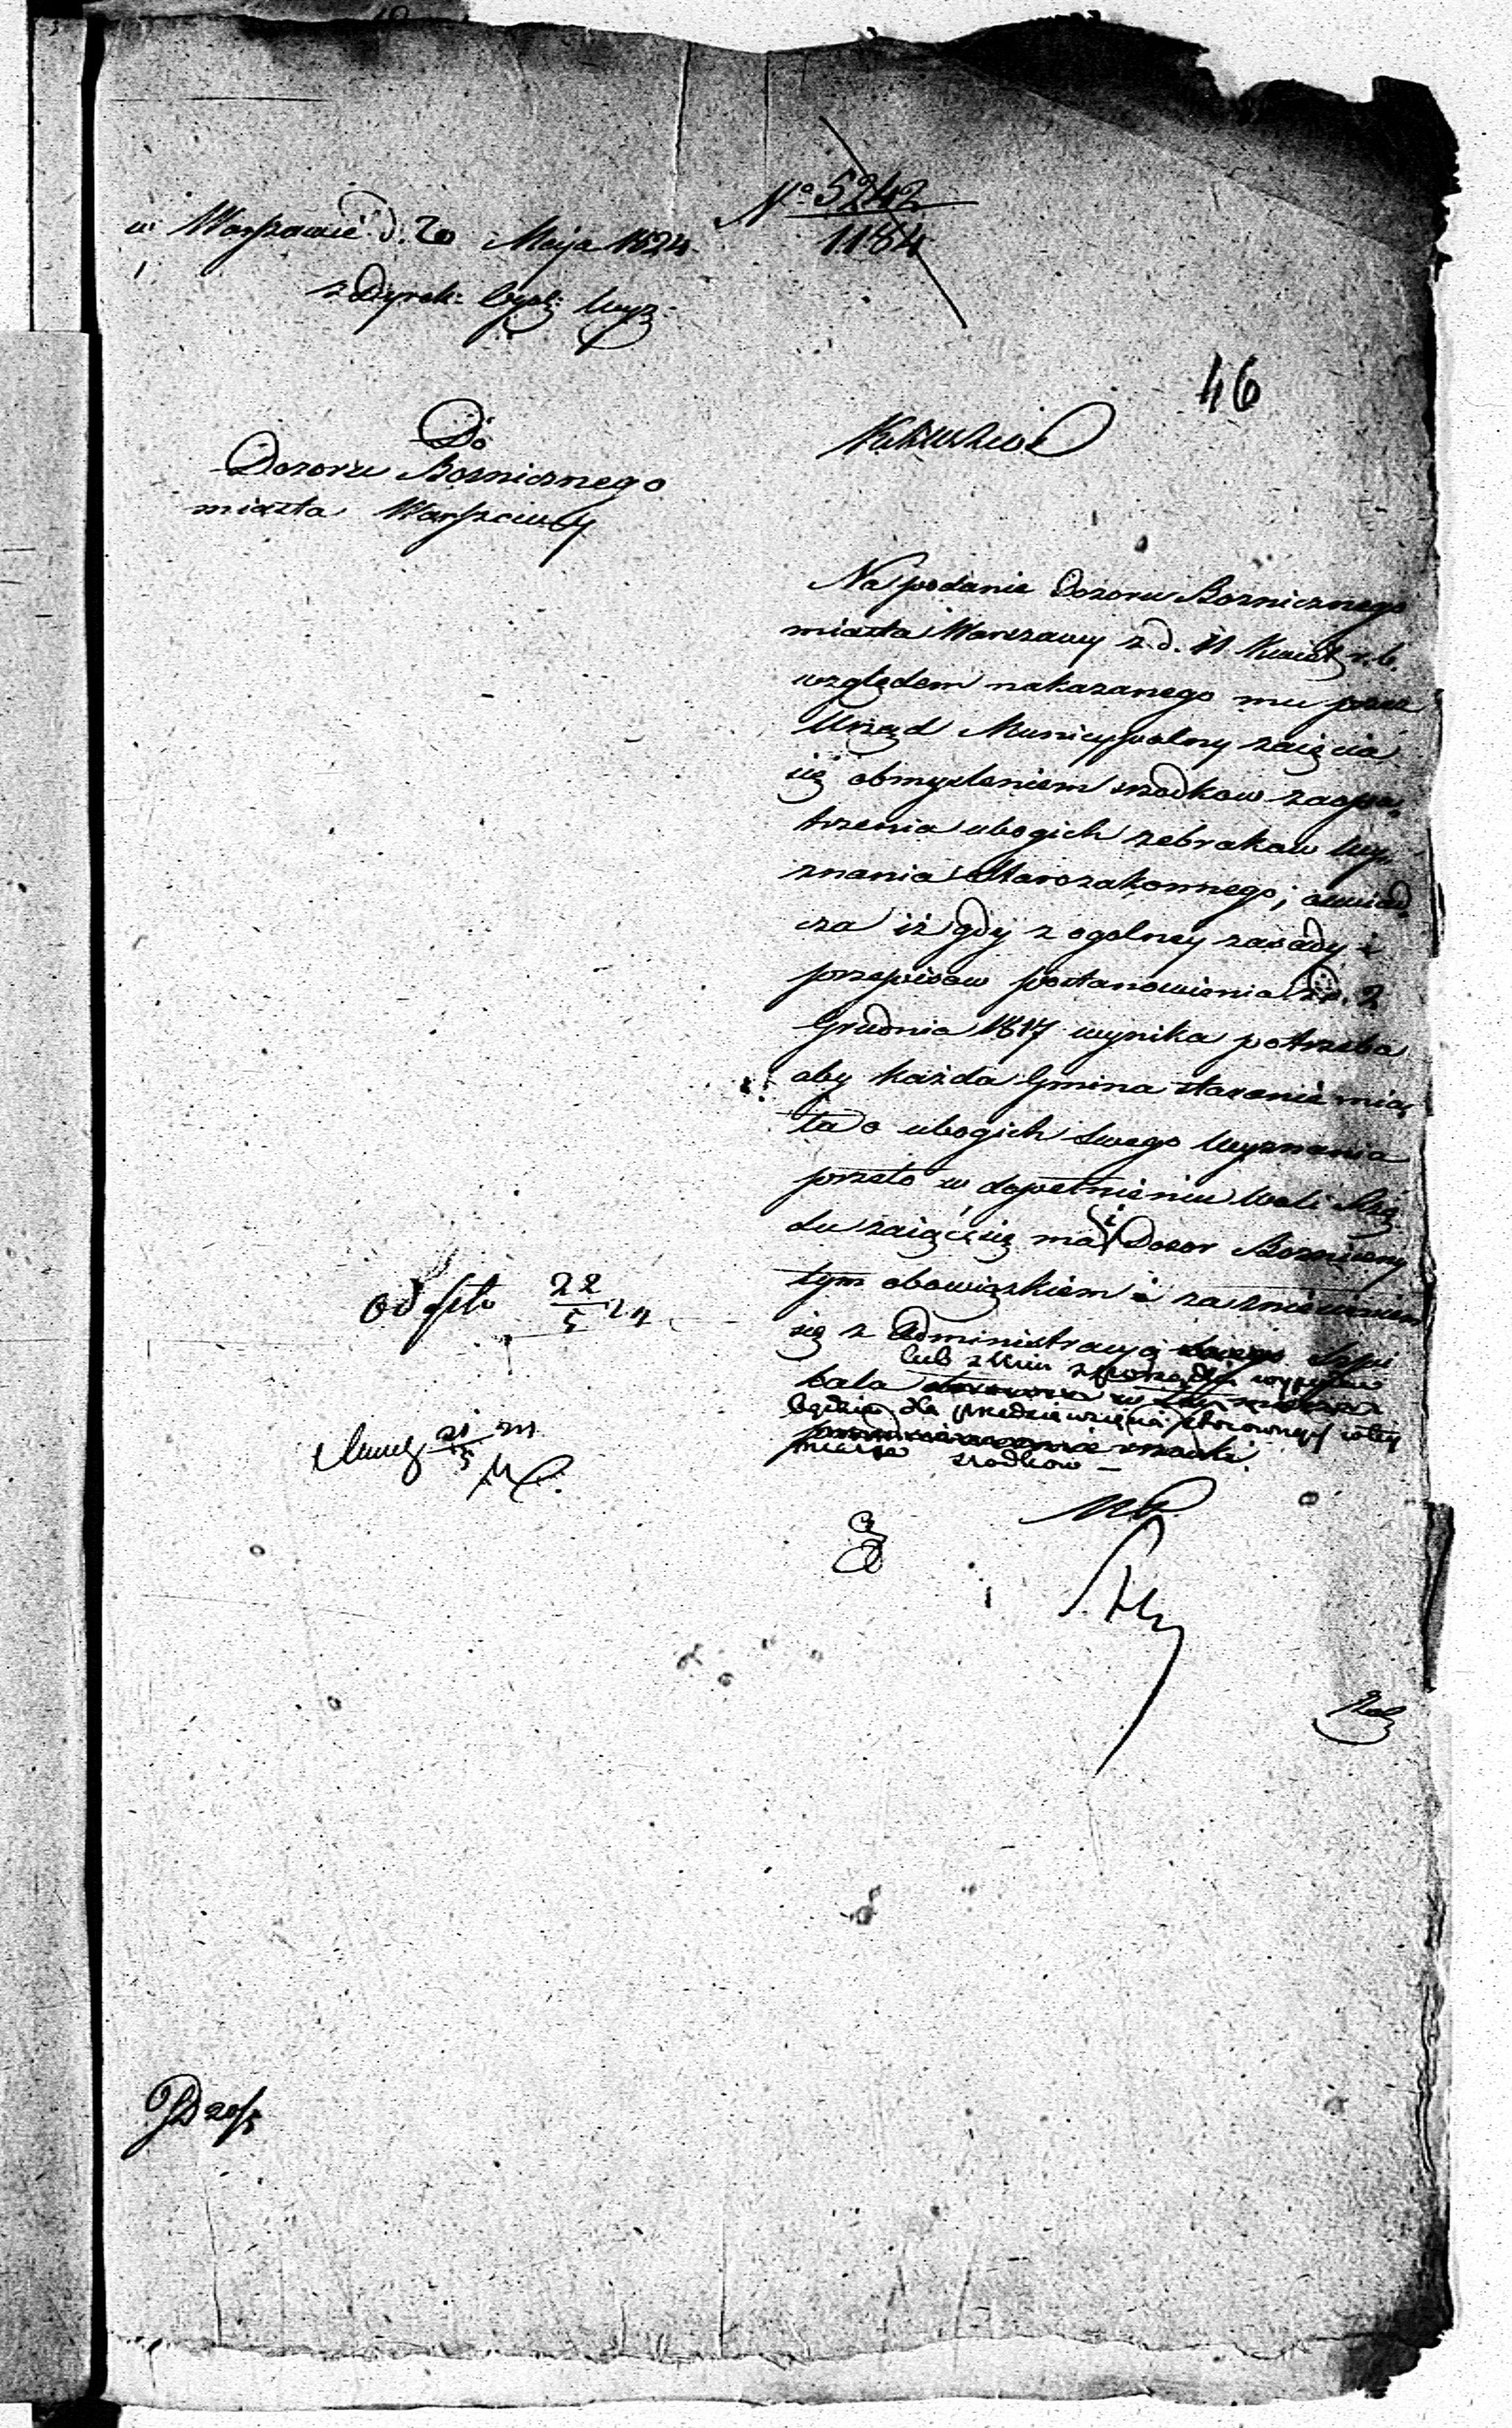 w Warszawie d. 20 Maja 1824
z Dyrek:
No 5242
1184
46
Do
Dozoru Boznicznego
miasta Warszawy
Na podanie Dozoru Boznicznego
miasta Warszawy z d. 11 Kwiet. r. b.
względem nakazanego mu przez
Urząd Municypalny zaięcia
się obmysleniem srodkow zaopa„
trzenia ubogich zebrakow Wy„
znania Starozakonnego; oswiad„
cza iż gdy z ogolney zasady i
przepisow postanowienia z d. 2
Grudnia 1817 wynika potrzeba
aby każda Gmina staranie mia„
ła o ubogich swego Wyznania
przeto w dopełnieniu Woli Rzą
du zaiąć się ma i Dozor Bozniczny
tym obowiązkiem i za zniesieniem
się z Administracyą Szpi
lub z kim z porządku wypadnie
tala
będzie dla przedsięwzięcia stosownych w tey
mierze srodkow —
odeszło 22/5 24
21/5 24
20/5